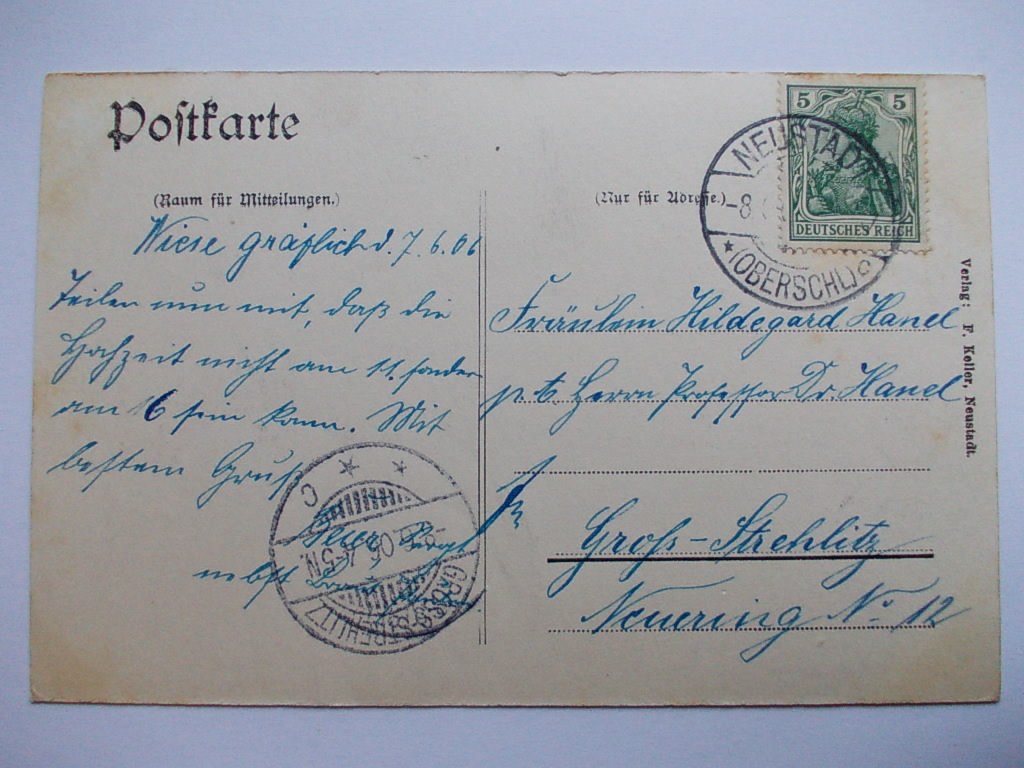 Postkarte
(Raum für Mitteilungen.)
(Nur für Adresse.)
5 5
DEUTSCHES REICH
NEUSTADT
-8
*(OBERSCHL)c
Wiese gräflich d. 7.6.06
Teilen nun mit, daß die
Hochzeit nicht am 11. sondern
am 16 sein kann. Mit
bestem Gruß
nebst
Fräulein Hildegard Hanel
Herrn Professor Dr. Hanel
Gross-Strehlitz
Neuring No 12
C
06 4-5N.
GROSS STREHLITZ
Verlag: F. Keller, Neustadt.